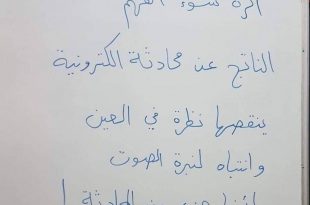 اكره سوء الفهم
الناتج عن محادثة الكترونية
ينقصها نظرة في العين
وانتباه لنبرة الصوت
المحادثة !